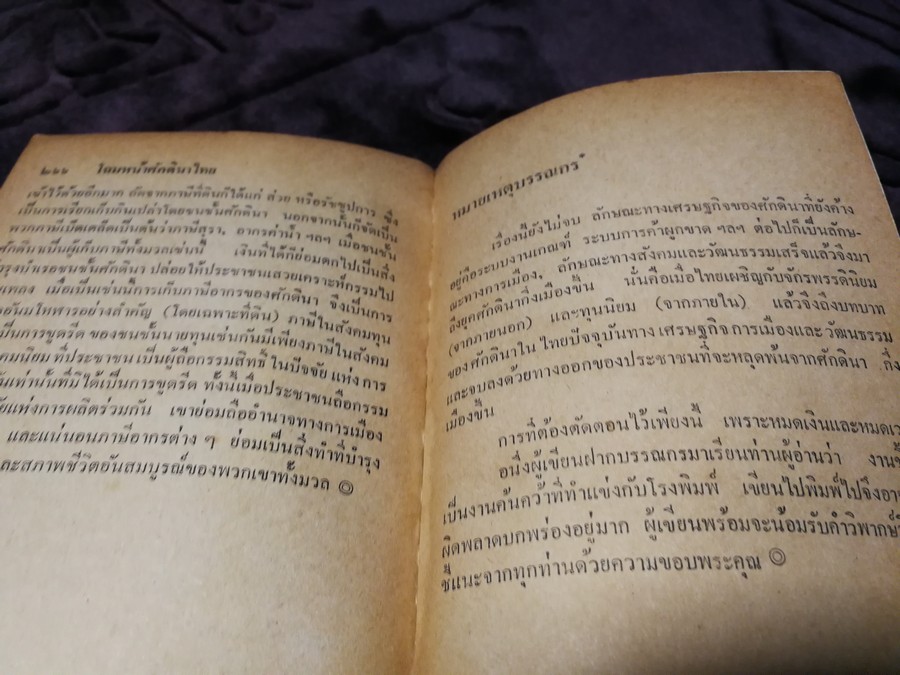 ๒๖๖ โฉมหน้าศักดินาไทย
เข้าไว้ด้วยอีกมาก ถัดจากภาษีที่ดินก็ได้แก่ ส่วย หรือรัชชูปการ ซึ่ง
เป็นการเรียกเก็บกันเปล่าโดยชนชั้นศักดินา นอกจากนั้นก็จัดเป็น
พวกภาษีเบ็ดเตล็ดเป็นต้นว่าภาษีสุรา, อากรค่าน้ำ ฯลฯ เมื่อชนชั้น
ศักดินาเป็นผู้เก็บภาษีทั้งมวลเช่นนี้ เงินที่ได้ก็ย่อมตกไปเป็นสิ่ง
บำรุงบำเรอชนชั้นศักดินา ปล่อยให้ประชาชนเสวยเคราะห์กรรมไป
เมื่อเป็นเช่นนี้การเก็บภาษีอากรของศักดินา จึงเป็นการ
อย่างสำคัญ (โดยเฉพาะที่ดิน) ภาษีในสังคมทุน
เป็นการขูดรีด ของชนชั้นนายทุนเช่นกันมีเพียงภาษีในสังคม
คมนิยม ที่ประชาชนเป็นผู้ถือกรรมสิทธิ์ ในปัจจัย แห่ง การ
นเท่านั้นที่มิได้เป็นการขูดรีด ทั้งนี้เมื่อประชาชนถือกรรม
ยแห่งการผลิตร่วมกัน เขาย่อมถืออำนาจทางการเมือง
และแน่นอนภาษีอากรต่าง ๆ ย่อมเป็นสิ่งทำที่บำรุง
ละสภาพชีวิตอันสมบูรณ์ของพวกเขาทั้งมวล ◎
หมายเหตุบรรณกร
เรื่องนี้ยังไม่จบ ลักษณะทางเศรษฐกิจของศักดินาที่ยังค้าง
อยู่คือระบบงานเกณฑ์ ระบบการค้าผูกขาด ฯลฯ ต่อไปก็เป็นลักษ-
ณะทางการเมือง, ลักษณะทางสังคมและวัฒนธรรมเสร็จแล้วจึงมา
ถึงยุคศักดินากึ่งเมืองขึ้น นั่นคือเมื่อไทยเผชิญกับจักรพรรดินิยม
(จากภายนอก) และทุนนิยม (จากภายใน) แล้วจึงถึงบทบาท
ของศักดินาใน ไทยปัจจุบันทาง เศรษฐกิจ การเมืองและ วัฒนธรรม
และจบลงด้วยทางออกของประชาชนที่จะหลุดพ้นจากศักดินา กึ่ง
เมืองขึ้น
การที่ต้องตัดตอนไว้เพียงนี้ เพราะหมดเงินและหมดเว
อนึ่งผู้เขียนฝากบรรณกรมาเรียนท่านผู้อ่านว่า งาน
เป็นงานค้นคว้าที่ทำแข่งกับโรงพิมพ์ เขียนไปพิมพ์ไปจึงอา
ผิดพลาดบกพร่องอยู่มาก ผู้เขียนพร้อมจะน้อมรับคำวิพากษ์
ชี้แนะจากทุกท่านด้วยความขอบพระคุณ ◎